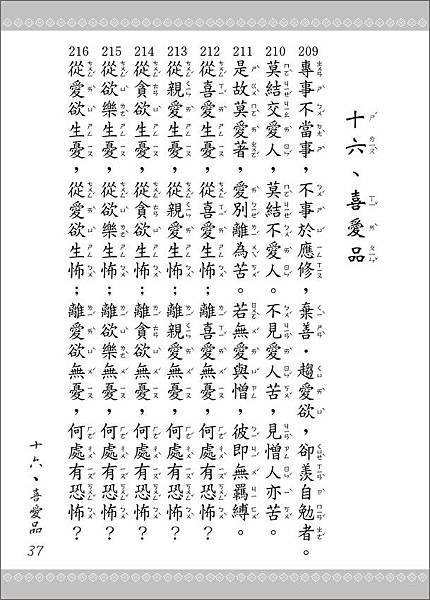 十六、喜愛品
209 專事不當事，不事於應修，棄善‧趨愛欲，卻羨自勉者。
210 莫結交愛人，莫結不愛人。不見愛人苦，見憎人亦苦。
211 是故莫愛著，愛別離為苦。若無愛與憎，彼即無羈縛。
212 從喜愛生憂，從喜愛生怖；離喜愛無憂，何處有恐怖？
213 從親愛生憂，從親愛生怖；離親愛無憂，何處有恐怖？
214 從貪欲生憂，從貪欲生怖；離貪欲無憂，何處有恐怖？
215 從欲樂生憂，從欲樂生怖；離欲樂無憂，何處有恐怖？
216 從愛欲生憂，從愛欲生怖；離愛欲無憂，何處有恐怖？
十六、喜愛品
37